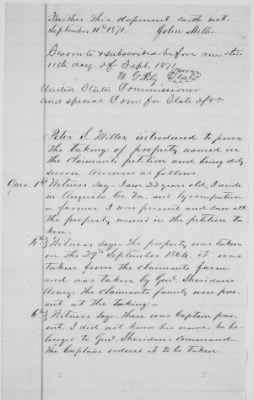 Further this deponent saith not.
September 11th 1871. John Miller
Sworn to & subscribed before me this
11th day of Sept. 1871
United States Commissioner
and special Com. for State of Va
Peter S. Miller introduced to prove
the taking of property named in
the claimants petition and being duly
sworn Answers as follows.
Ques. 1st Witness Says I am 23 years old, I reside
in Augusta Co. Va. and by occupation
a farmer. I was present and saw all
the property named in the petition ta-
ken.
4th Witness says The property was taken
on the 29th September 1864. it was
taken from the claimants farm
and was taken by Genl. Sheridan's
Army. The claimants family were pres-
ent at the taking -
6th Witness Says there was Captain pres-
ent, I did not know his name, he be-
longed to Genl. Sheridans Command
The Captain ordered it to be taken